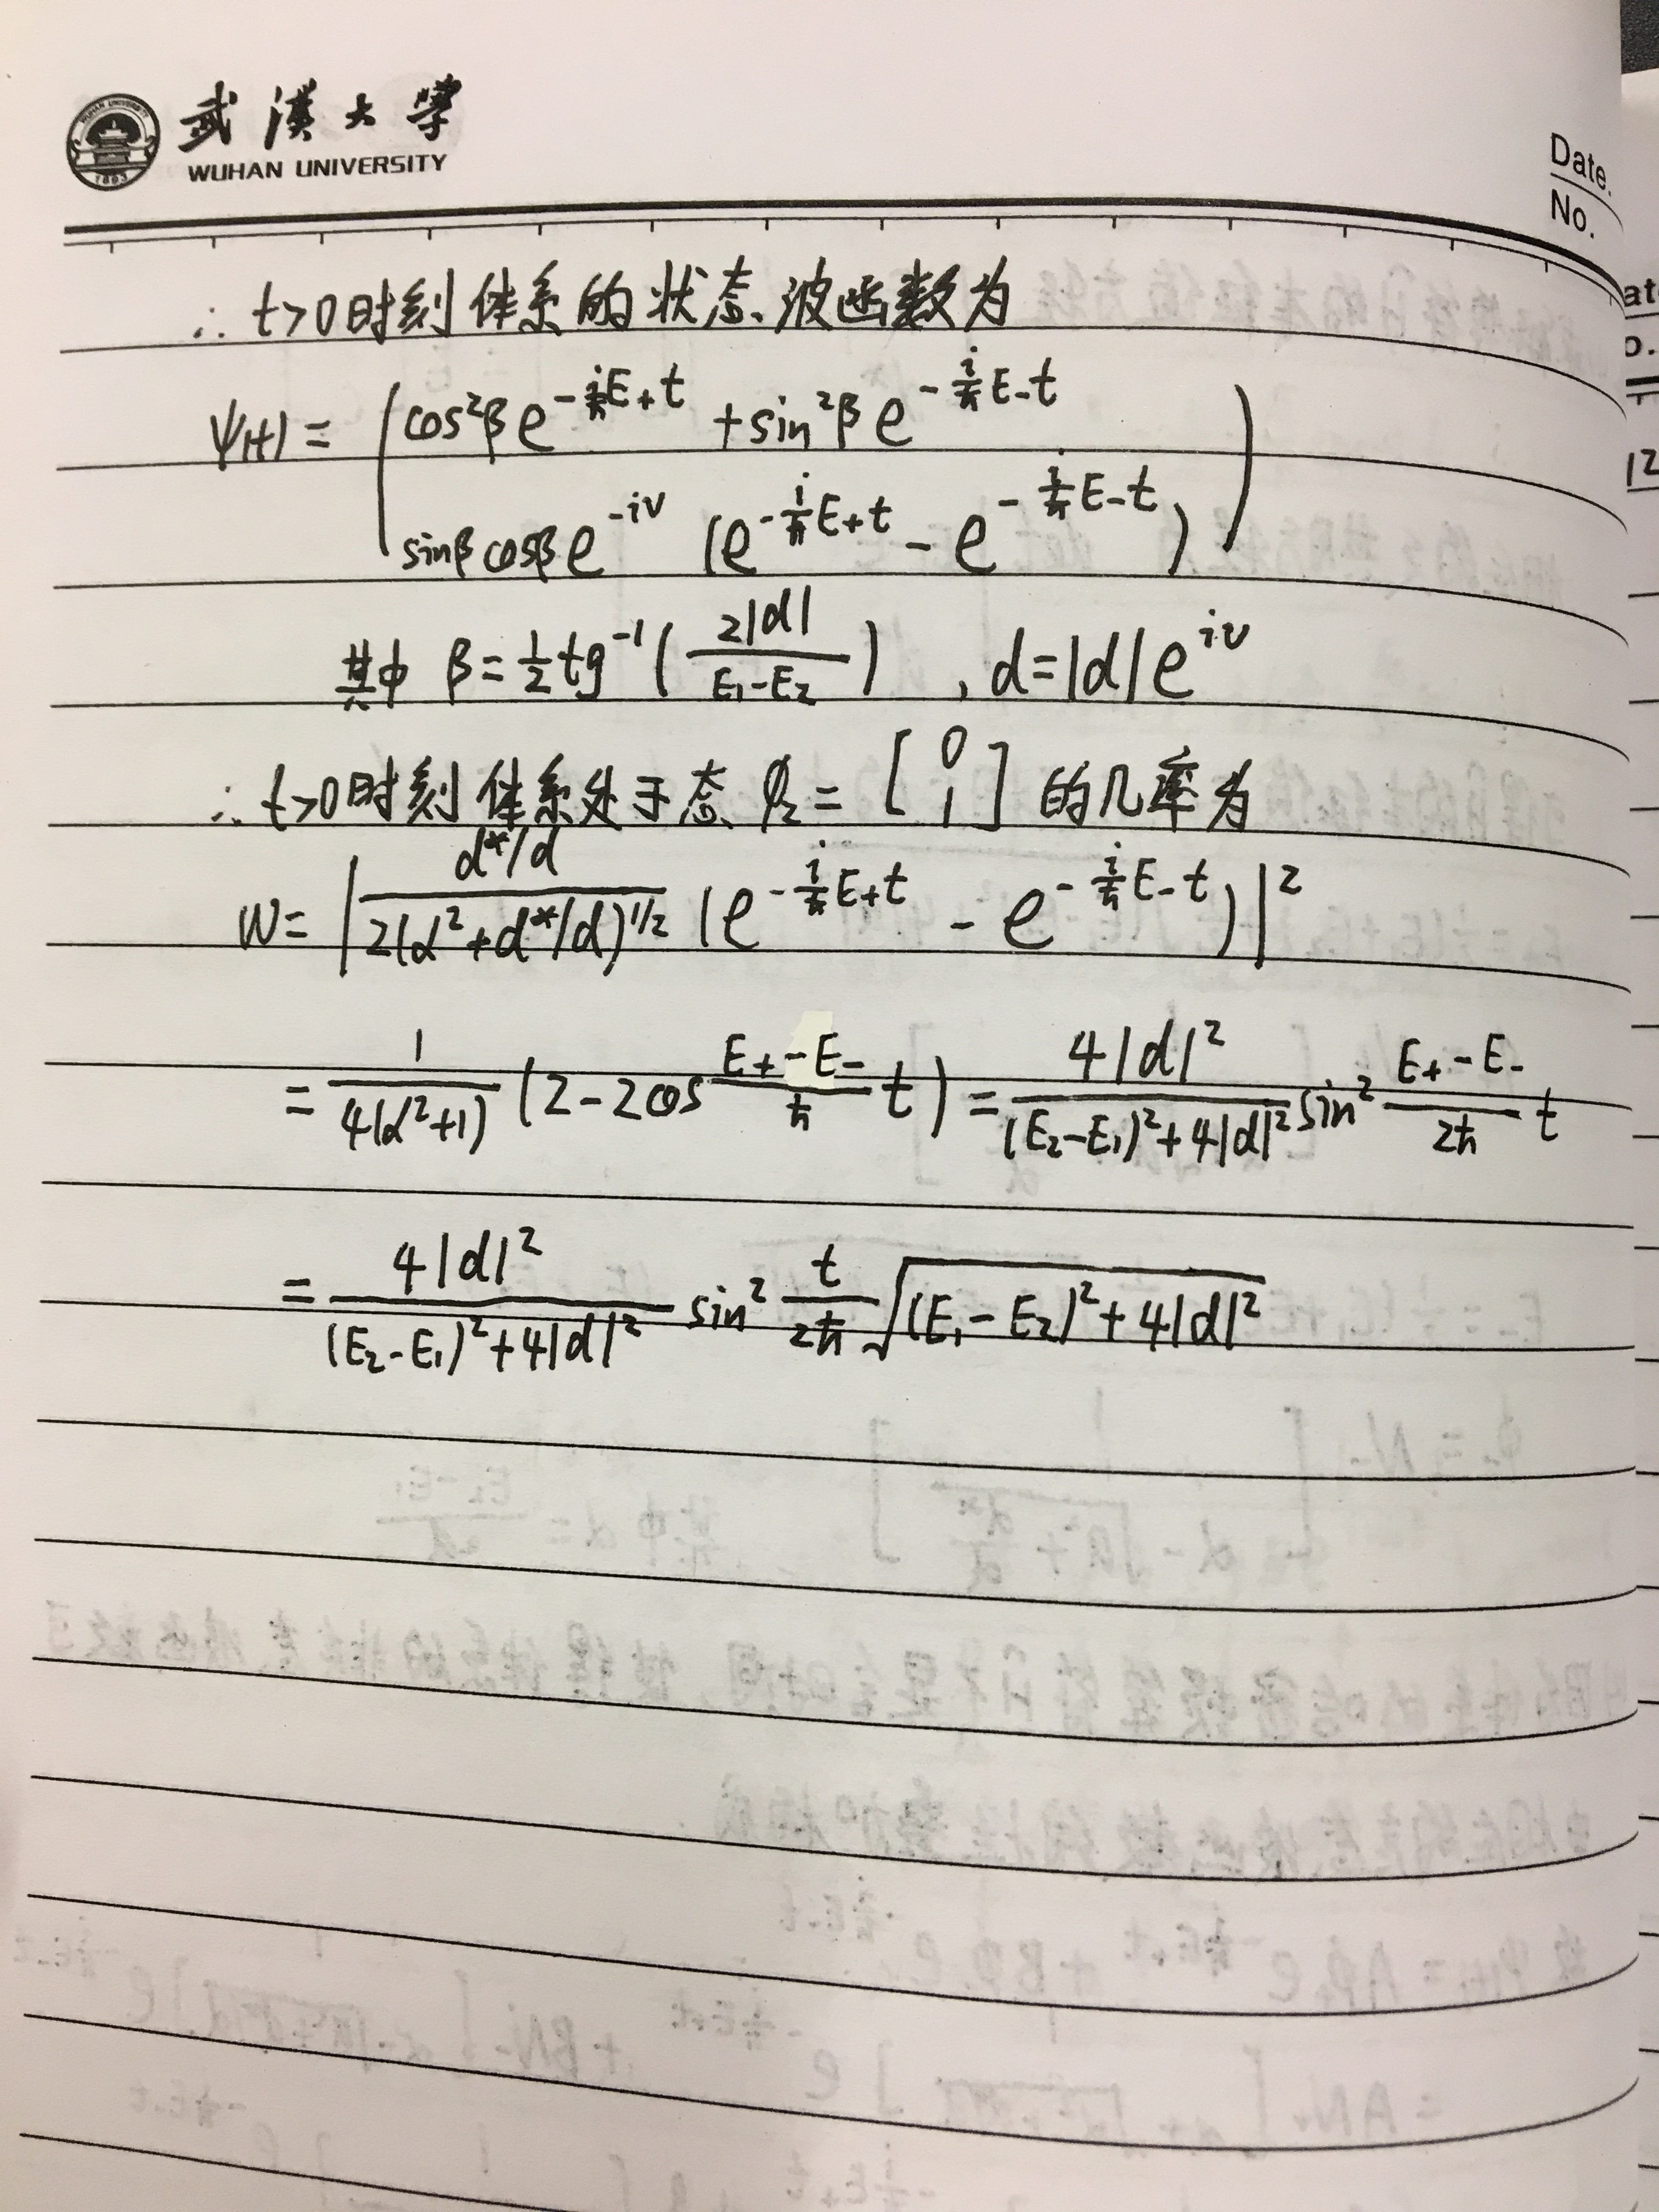 武漢大學
WUHAN UNIVERSITY
Date.
No.
∴ t>0时刻体系的状态波函数为
ψ(t) = ( cos²β e^{-i/ħ E₊t} + sin²β e^{-i/ħ E₋t}
sinβ cosβ e^{-iν} (e^{-i/ħ E₊t} - e^{-i/ħ E₋t}) )
其中 β = 1/2 tg⁻¹ ( 2|d| / E₁-E₂ ) , d = |d| e^{iν}
∴ t>0时刻体系处于态 φ₂ = [ 0 1 ] 的几率为
W = | d*/d / 2(α²+d*/d)^{1/2} (e^{-i/ħ E₊t} - e^{-i/ħ E₋t}) |²
= 1 / 4(α²+1) (2 - 2cos E₊-E₋ / ħ t) = 4|d|² / (E₂-E₁)²+4|d|² sin² E₊-E₋ / 2ħ t
= 4|d|² / (E₂-E₁)²+4|d|² sin² t / 2ħ √(E₁-E₂)²+4|d|²